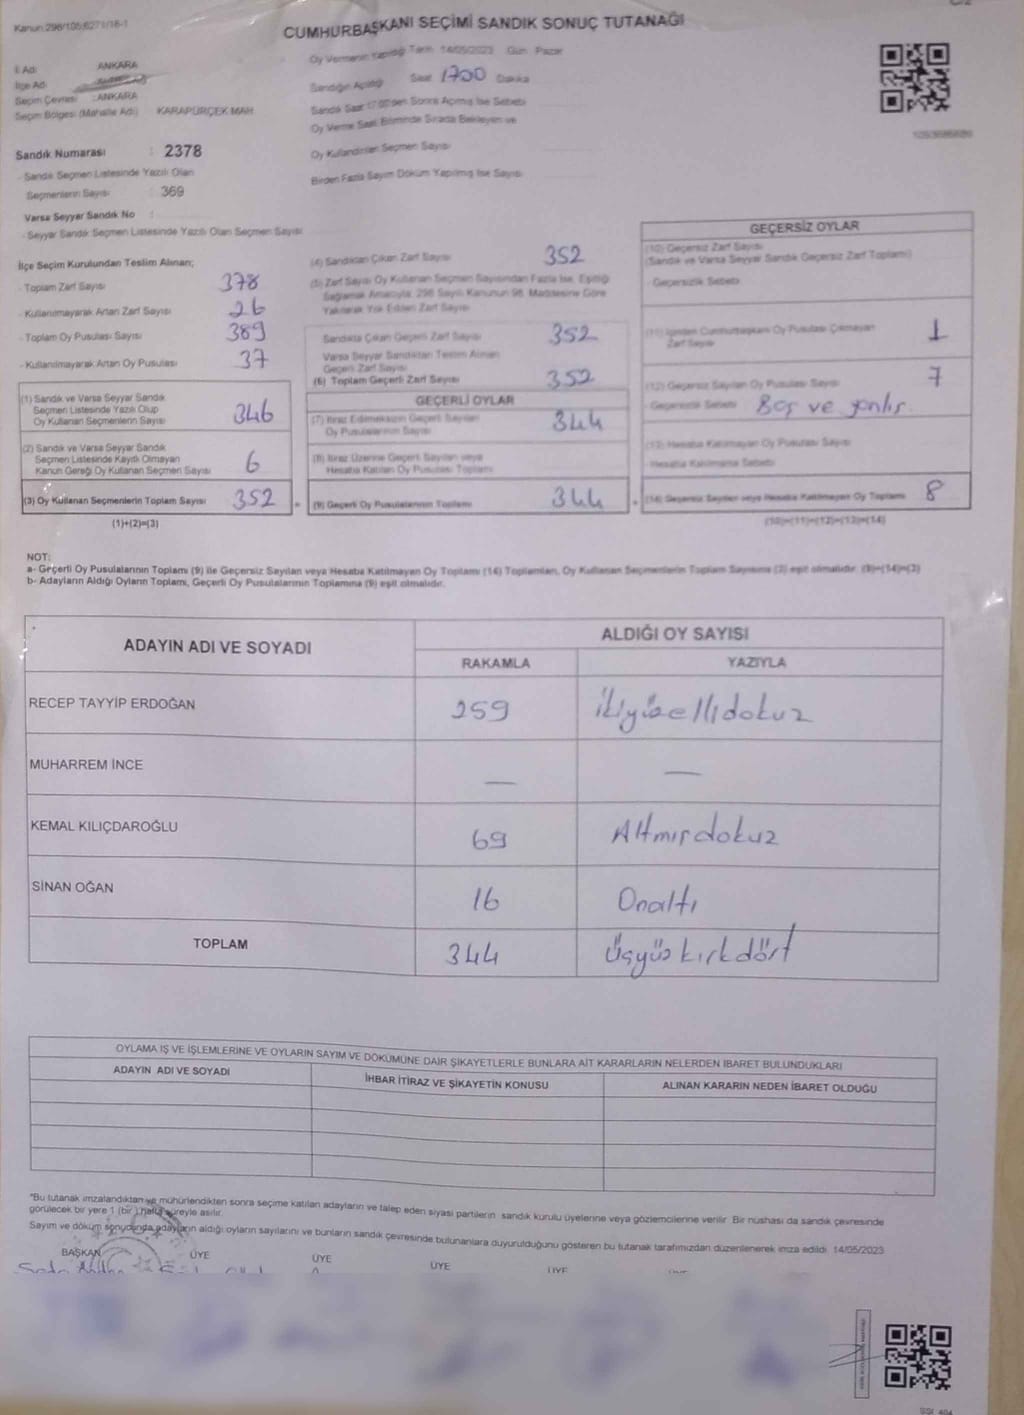 Kanun 298/105;6271/16-1
CUMHURBAŞKANI SEÇİMİ SANDIK SONUÇ TUTANAĞI
İl Adı ANKARA
İlçe Adı
Seçim Çevresi : ANKARA
Seçim Bölgesi (Mahalle Adı) KARAPÜRÇEK MAH.
Oy Vermenin Yapıldığı Tarih 14/05/2023 Gün Pazar
Sandığın Açıldığı Saat 1700 Dakika
Sandık Saat 17:00'den Sonra Açılmış İse Sebebi
Oy Verme Saat Bitiminde Sırada Bekleyen ve
Oy Kullandırılan Seçmen Sayısı
Birden Fazla Sayım Döküm Yapılmış İse Sayısı
Sandık Numarası : 2378
- Sandık Seçmen Listesinde Yazılı Olan
Seçmenlerin Sayısı : 369
Varsa Seyyar Sandık No :
- Seyyar Sandık Seçmen Listesinde Yazılı Olan Seçmen Sayısı
İlçe Seçim Kurulundan Teslim Alınan;
- Toplam Zarf Sayısı 378
- Kullanılmayarak Artan Zarf Sayısı 26
- Toplam Oy Pusulası Sayısı 389
- Kullanılmayarak Artan Oy Pusulası 37
(1) Sandık ve Varsa Seyyar Sandık
Seçmen Listesinde Yazılı Olup
Oy Kullanan Seçmenlerin Sayısı 346
(2) Sandık ve Varsa Seyyar Sandık
Seçmen Listesinde Kayıtlı Olmayan
Kanun Gereği Oy Kullanan Seçmen Sayısı 6
(3) Oy Kullanan Seçmenlerin Toplam Sayısı 352
(1)+(2)=(3)
(4) Sandıktan Çıkan Zarf Sayısı 352
(5) Zarf Sayısı Oy Kullanan Seçmen Sayısından Fazla İse, Eşitliği
Sağlamak Amacıyla, 298 Sayılı Kanunun 98. Maddesine Göre
Yakılarak Yok Edilen Zarf Sayısı
Sandıkta Çıkan Geçerli Zarf Sayısı 352
Varsa Seyyar Sandıktan Teslim Alınan
Geçerli Zarf Sayısı
(6) Toplam Geçerli Zarf Sayısı 352
GEÇERLİ OYLAR
(7) İtiraz Edilmeksizin Geçerli Sayılan
Oy Pusulalarının Sayısı 344
(8) İtiraz Üzerine Geçerli Sayılan veya
Hesaba Katılan Oy Pusulası Toplamı
(9) Geçerli Oy Pusulalarının Toplamı 344
GEÇERSİZ OYLAR
(10) Geçersiz Zarf Sayısı
(Sandık ve Varsa Seyyar Sandık Geçersiz Zarf Toplamı)
- Geçersizlik Sebebi
(11) İçinden Cumhurbaşkanı Oy Pusulası Çıkmayan
Zarf Sayısı 1
(12) Geçersiz Sayılan Oy Pusulası Sayısı 7
- Geçersizlik Sebebi Boş ve yanlış
(13) Hesaba Katılmayan Oy Pusulası Sayısı
- Hesaba Katılmama Sebebi
(14) Geçersiz Sayılan veya Hesaba Katılmayan Oy Toplamı 8
(10)+(11)+(12)+(13)=(14)
NOT:
a- Geçerli Oy Pusulalarının Toplamı (9) ile Geçersiz Sayılan veya Hesaba Katılmayan Oy Toplamı (14) Toplamları, Oy Kullanan Seçmenlerin Toplam Sayısına (3) eşit olmalıdır. (9)+(14)=(3)
b- Adayların Aldığı Oyların Toplamı, Geçerli Oy Pusulalarının Toplamına (9) eşit olmalıdır.
ADAYIN ADI VE SOYADI ALDIĞI OY SAYISI
RAKAMLA YAZIYLA
RECEP TAYYİP ERDOĞAN 259 ikiyüzellidokuz
MUHARREM İNCE — —
KEMAL KILIÇDAROĞLU 69 Altmışdokuz
SİNAN OĞAN 16 Onaltı
TOPLAM 344 Üçyüzkırkdört
OYLAMA İŞ VE İŞLEMLERİNE VE OYLARIN SAYIM VE DÖKÜMÜNE DAİR ŞİKAYETLERLE BUNLARA AİT KARARLARIN NELERDEN İBARET BULUNDUKLARI
ADAYIN ADI VE SOYADI İHBAR İTİRAZ VE ŞİKAYETİN KONUSU ALINAN KARARIN NEDEN İBARET OLDUĞU
"Bu tutanak imzalandıktan ve mühürlendikten sonra seçime katılan adayların ve talep eden siyasi partilerin sandık kurulu üyelerine veya gözlemcilerine verilir. Bir nüshası da sandık çevresinde
görülecek bir yere 1 (bir) hafta süreyle asılır.
Sayım ve döküm sonucunda adayların aldığı oyların sayılarını ve bunların sandık çevresinde bulunanlara duyurulduğunu gösteren bu tutanak tarafımızdan düzenlenerek imza edildi. 14/05/2023
BAŞKAN ÜYE ÜYE ÜYE ÜYE